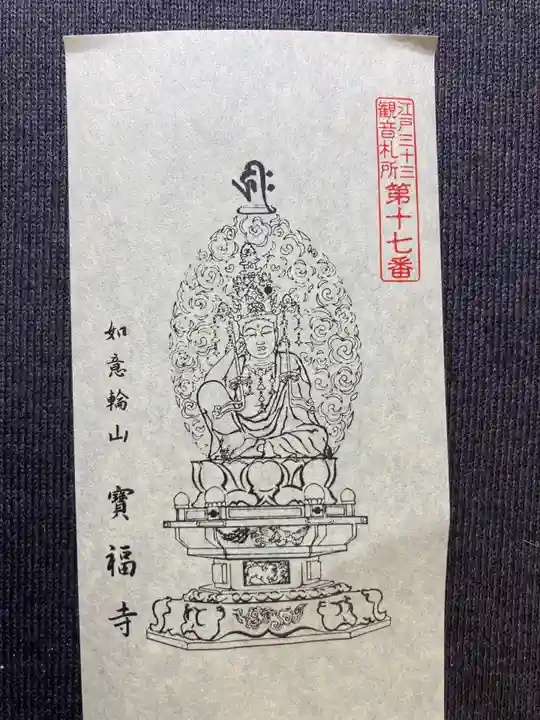 江戸三十三
観音札所
第十七番
如意輪山 寳福寺